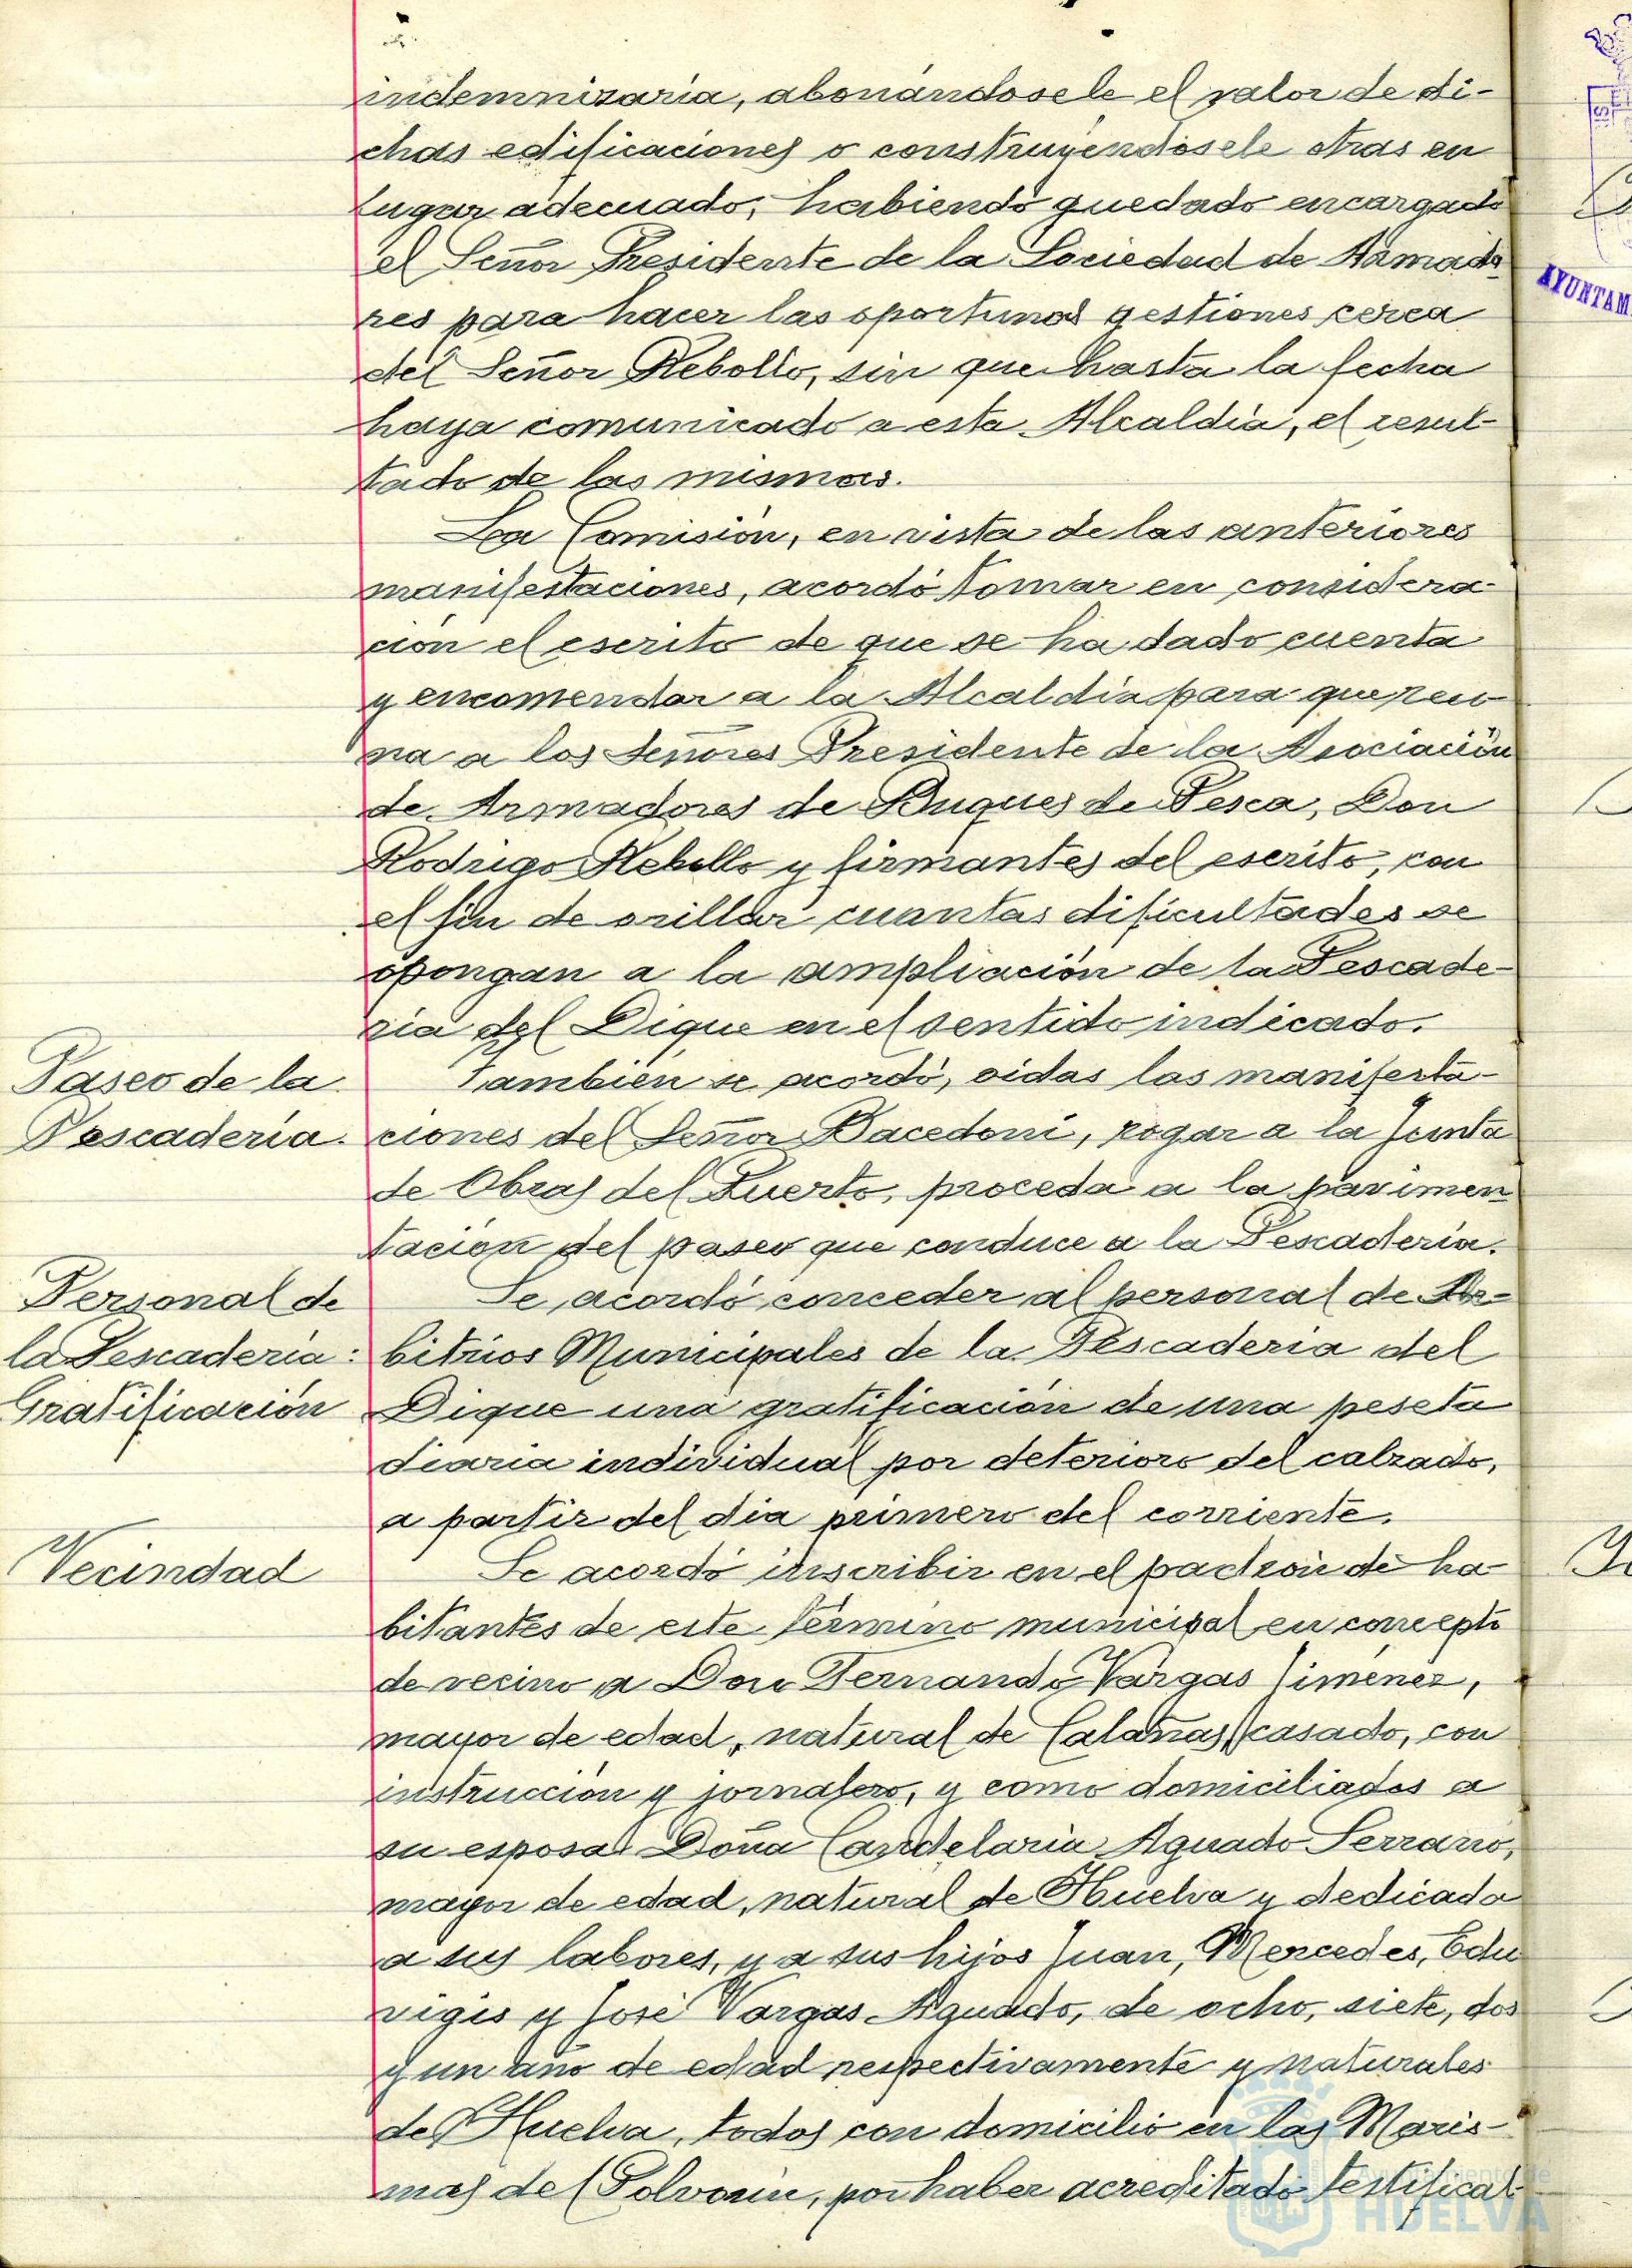 indemnizaría, abonándosele el valor de di-
chas edificaciones o construyéndosele otras en
lugar adecuado, habiendo quedado encargado
el Señor Presidente de la Sociedad de Armado
res para hacer las oportunas gestiones cerca
del Señor Rebollo, sin que hasta la fecha
haya comunicado a esta Alcaldía, el resul-
tado de las mismas.
La Comisión, en vista de las anteriores
manifestaciones, acordó tomar en considera-
ción el escrito de que se ha dado cuenta
y encomendar a la Alcaldía para que reu-
na a los Señores Presidente de la Asociación
de Armadores de Buques de Pesca, Don
Rodrigo Rebollo y firmantes del escrito, con
el fin de orillar cuantas dificultades se
opongan a la ampliación de la Pescade-
ria del Dique en el sentido indicado.
Paseo de la
Pescadería.
También se acordó, oidas las manifesta-
ciones del Señor Bacedoni, rogar a la Junta
de Obras del Puerto, proceda a la pavimen
tación del paseo que conduce a la Pescadería.
Personal de
la Pescaderia:
Gratificación
Se acordó conceder al personal de Ar-
bitrios Municipales de la Pescaderia del
Dique una gratificación de una peseta
diaria individual por deterioro del calzado,
a partir del dia primero del corriente.
Vecindad
Se acordó inscribir en el padrón de ha-
bitantes de este término municipal en concepto
de vecino a Don Fernando Vargas Jiménez,
mayor de edad, natural de Calañas, casado, con
instrucción y jornalero, y como domiciliados a
su esposa Doña Candelaria Aguado Serrano,
mayor de edad, natural de Huelva y dedicada
a sus labores, y a sus hijos Juan, Mercedes, Edu
vigis y José Vargas Aguado, de ocho, siete, dos
y un año de edad respectivamente y naturales
de Huelva, todos con domicilio en las Maris-
mas del Polvorin, por haber acreditado testifical
AYUNTAM
Ayuntamiento de
HUELVA